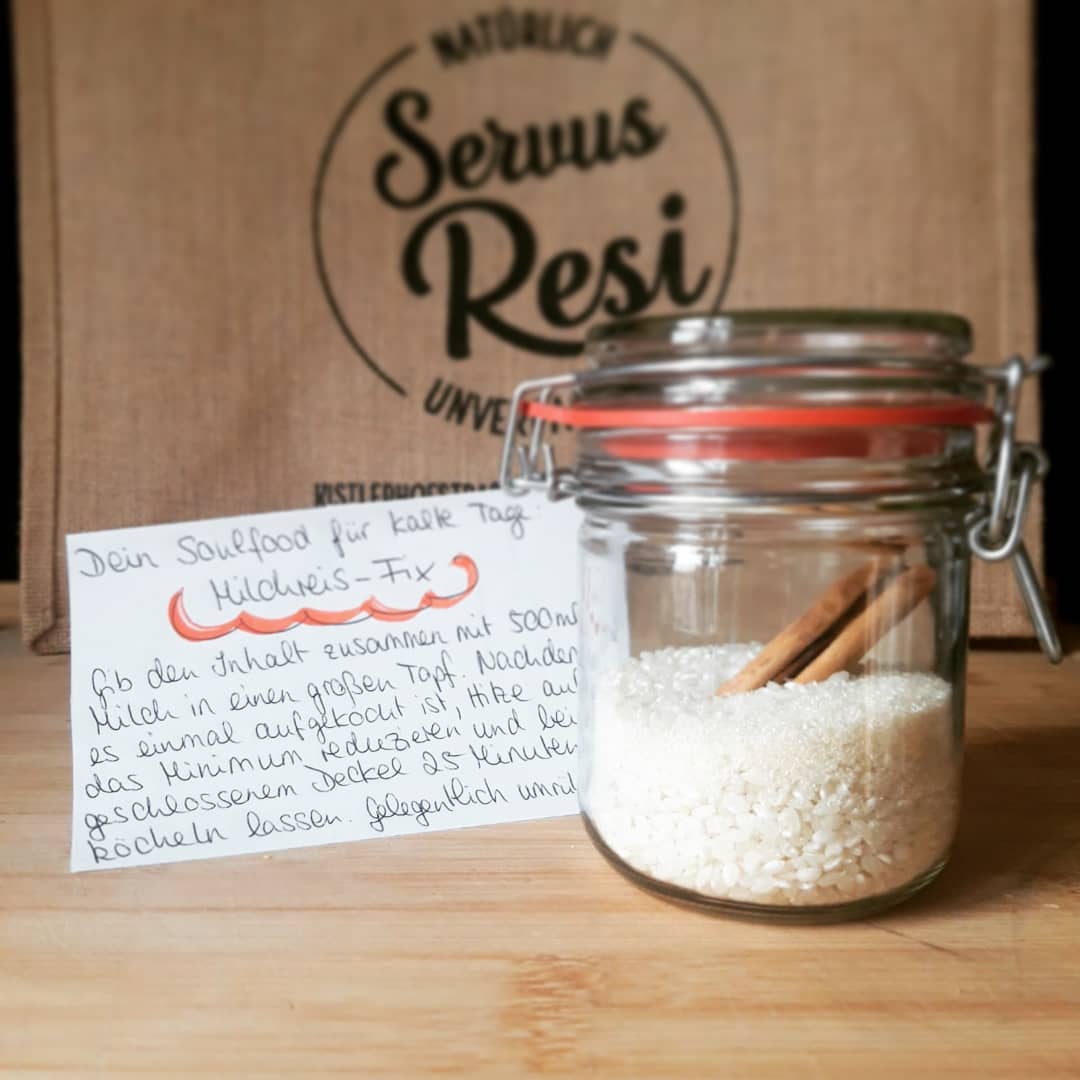 NATÜRLICH
Servus
Resi
Dein Soulfood für kalte Tage:
Milchreis-Fix
Gib den Inhalt zusammen mit 500ml
Milch in einen großen Topf. Nachdem
es einmal aufgekocht ist, Hitze auf
das Minimum reduzieren und bei
geschlossenem Deckel 25 Minuten
köcheln lassen. Gelegentlich